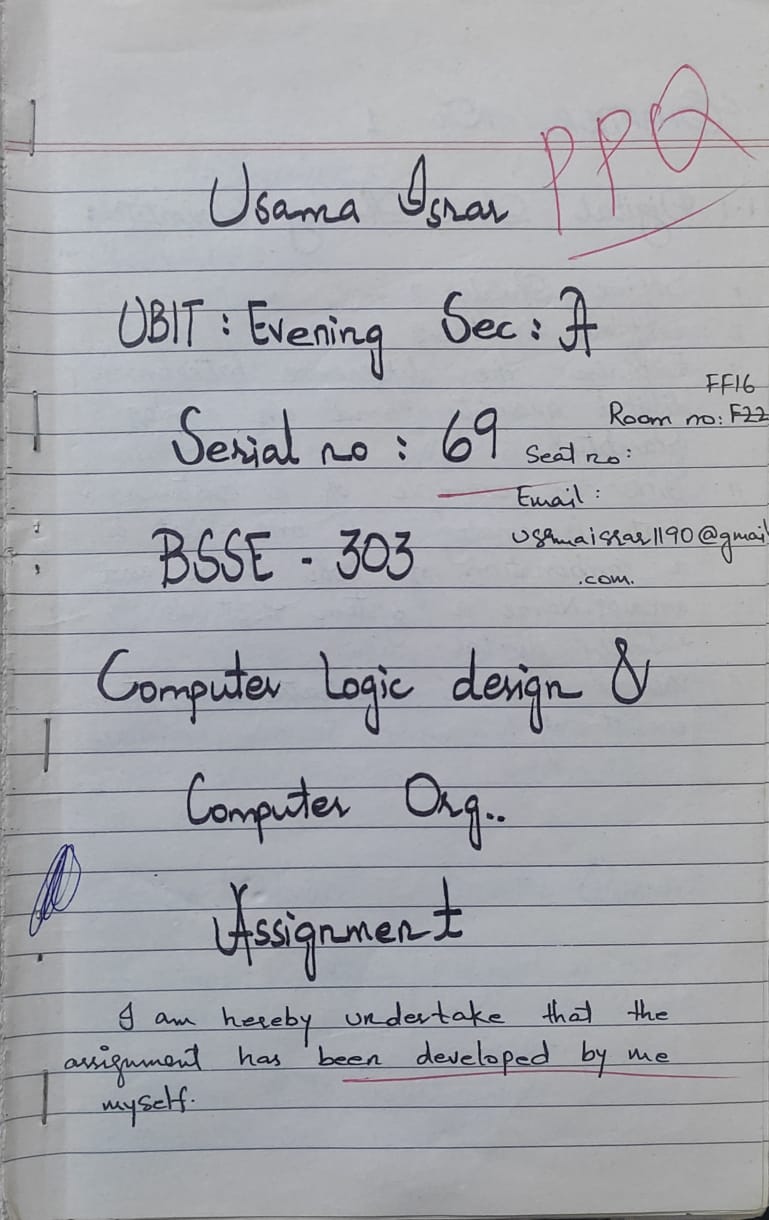 PPQ
Usama Israr
UBIT : Evening Sec : A
FF16
Room no: F22
Serial no : 69 Seat no:
Email :
usamaisrar1190@gmail
.com.
BSSE - 303
Computer Logic design &
Computer Org..
Assignment
I am hereby undertake that the
assignment has been developed by me
myself.